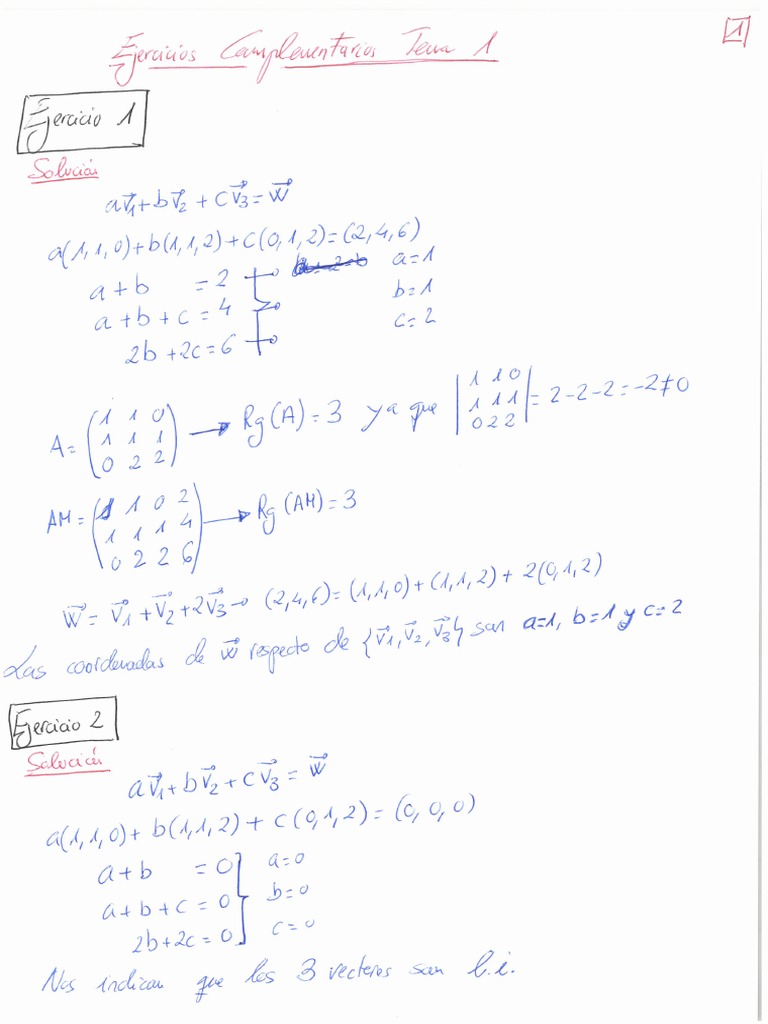 1
Ejercicios Complementarios Tema 1
Ejercicio 1
Solución
av⃗1+bv⃗2+cv⃗3=w⃗
a(1,1,0)+b(1,1,2)+c(0,1,2)=(2,4,6)
a+b =2 a=1
a+b+c=4 b=1
2b+2c=6 c=2
A=(1 1 0
1 1 1
0 2 2) → Rg(A)=3 ya que |1 1 0
1 1 1
0 2 2| = 2-2-2=-2≠0
AM=(1 1 0 2
1 1 1 4
0 2 2 6) → Rg(AM)=3
w⃗=v⃗1+v⃗2+2v⃗3→ (2,4,6)=(1,1,0)+(1,1,2)+2(0,1,2)
Las coordenadas de w⃗ respecto de {v⃗1,v⃗2,v⃗3} son a=1, b=1 y c=2
Ejercicio 2
Solución
av⃗1+bv⃗2+cv⃗3=w⃗
a(1,1,0)+b(1,1,2)+c(0,1,2)=(0,0,0)
a+b =0 a=0
a+b+c=0 b=0
2b+2c=0 c=0
Nos indican que los 3 vectores son l.i.